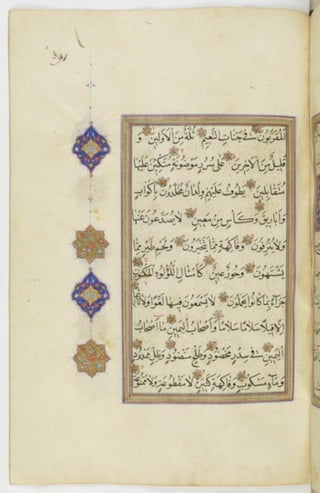 المقربون في جنات النعيم ثلة من الأولين و
قليل من الآخرين على سرر موضونة متكئين عليها
متقابلين يطوف عليهم ولدان مخلدون بأكواب
وأباريق وكأس من معين لا يصدعون عنها
ولا ينزفون وفاكهة مما يتخيرون ولحم طير مما
يشتهون وحور عين كأمثال اللؤلؤ المكنون
جزاء بما كانوا يعملون لا يسمعون فيها لغوا ولا تأثيما
إلا قيلا سلاما سلاما وأصحاب اليمين ما أصحاب
اليمين في سدر مخضود وطلح منضود وظل ممدود
وماء مسكوب وفاكهة كثيرة لا مقطوعة ولا ممنوعة